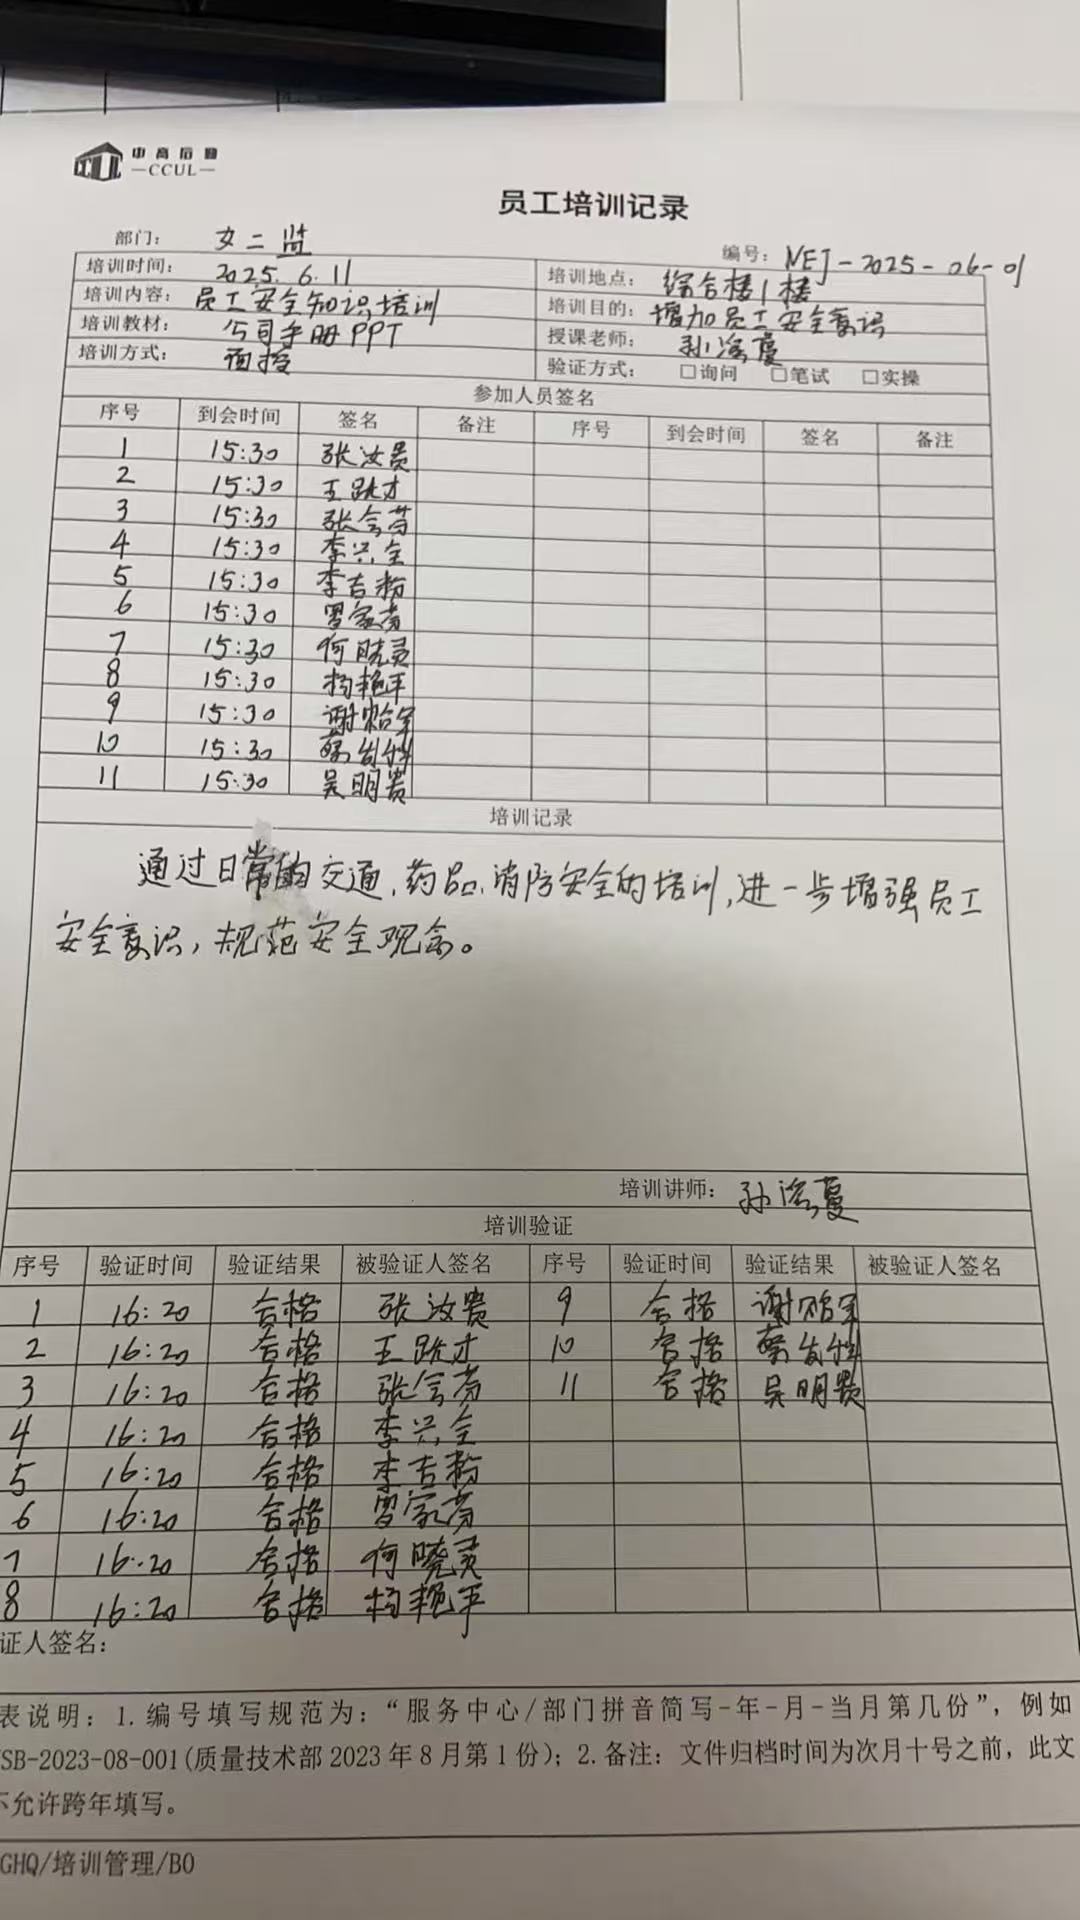 中高后勤
CCUL
员工培训记录
部门： 女二监
编号： NEJ-2025-06-01
培训时间： 2025.6.11
培训地点： 综合楼1楼
培训内容： 员工安全知识培训
培训目的： 增加员工安全意识
培训教材： 公司手册PPT
授课老师： 孙
培训方式： 面授
验证方式： □询问 □笔试 □实操
参加人员签名
序号 到会时间 签名 备注 序号 到会时间 签名 备注
1 15:30 张汝贵
2 15:30 王跃才
3 15:30 张会芬
4 15:30 李兴全
5 15:30 李吉粉
6 15:30 罗家芬
7 15:30 何晓灵
8 15:30 杨艳平
9 15:30 谢
10 15:30 蔡发
11 15:30 吴明贵
培训记录
通过日常的交通、药品、消防安全的培训，进一步增强员工
安全意识，规范安全观念。
培训讲师： 孙
培训验证
序号 验证时间 验证结果 被验证人签名 序号 验证时间 验证结果 被验证人签名
1 16:20 合格 张汝贵 9 合格 谢
2 16:20 合格 王跃才 10 合格 蔡发
3 16:20 合格 张会芬 11 合格 吴明贵
4 16:20 合格 李兴全
5 16:20 合格 李吉粉
6 16:20 合格 罗家芬
7 16:20 合格 何晓灵
8 16:20 合格 杨艳平
证人签名：
表说明：1.编号填写规范为：“服务中心/部门拼音简写-年-月-当月第几份”，例如
SB-2023-08-001(质量技术部2023年8月第1份)；2.备注：文件归档时间为次月十号之前，此文
不允许跨年填写。
GHQ/培训管理/B0